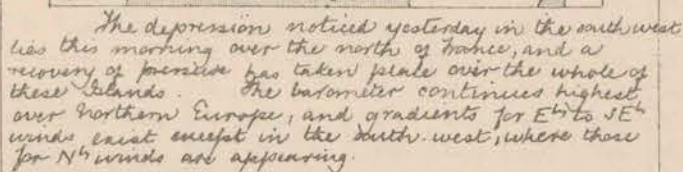 The depression noticed yesterday in the south west
lies this morning over the north of France, and a
recovery of pressure has taken place over the whole of
these Islands. The barometer continues highest
over Northern Europe, and gradients for Ely to SEly
winds exist except in the south-west, where those
for Nly winds are appearing.